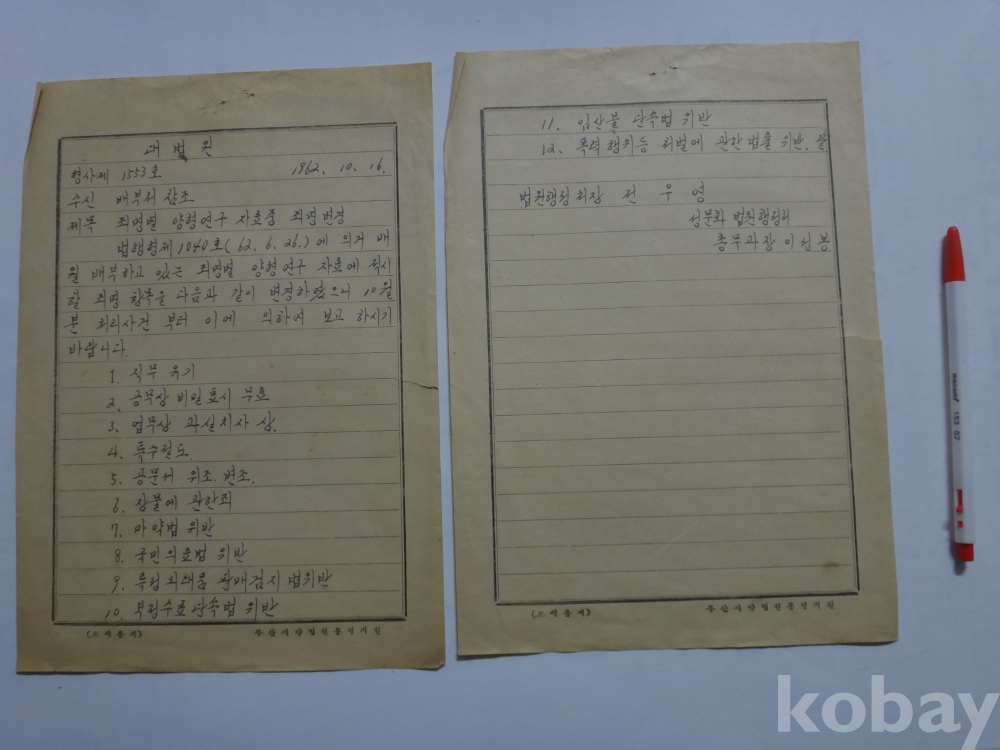 대법원
형사제 1553호 1962. 10. 16.
수신 배부처 참조
제목 죄명별 양형연구 자료중 죄명변경
법행형제1040호(62. 6. 26.)에 의거 매
월 배부하고 있는 죄명별 양형연구 자료에 적시
할 죄명 항목을 다음과 같이 변경하였으니 10월
분 처리사건 부터 이에 의하여 보고 하시기
바랍니다.
1. 직무 유기
2. 공무상 비밀표시 무효
3. 업무상 과실치사 상.
4. 특수절도.
5. 공문서 위조. 변조.
6. 장물에 관한죄
7. 마약법 위반
8. 국민의료법 위반
9. 특정외래품 판매금지 법위반
10. 부정수표 단속법 위반
(소세용지) 부산지방법원통영지원
11. 임산물 단속법 위반
12. 폭력행위등 처벌에 관한 법률 위반. 끝
법원행정처장 전 우 영
법원행정처
총무과장 이정봉
부산지방법원통영지원
kobay